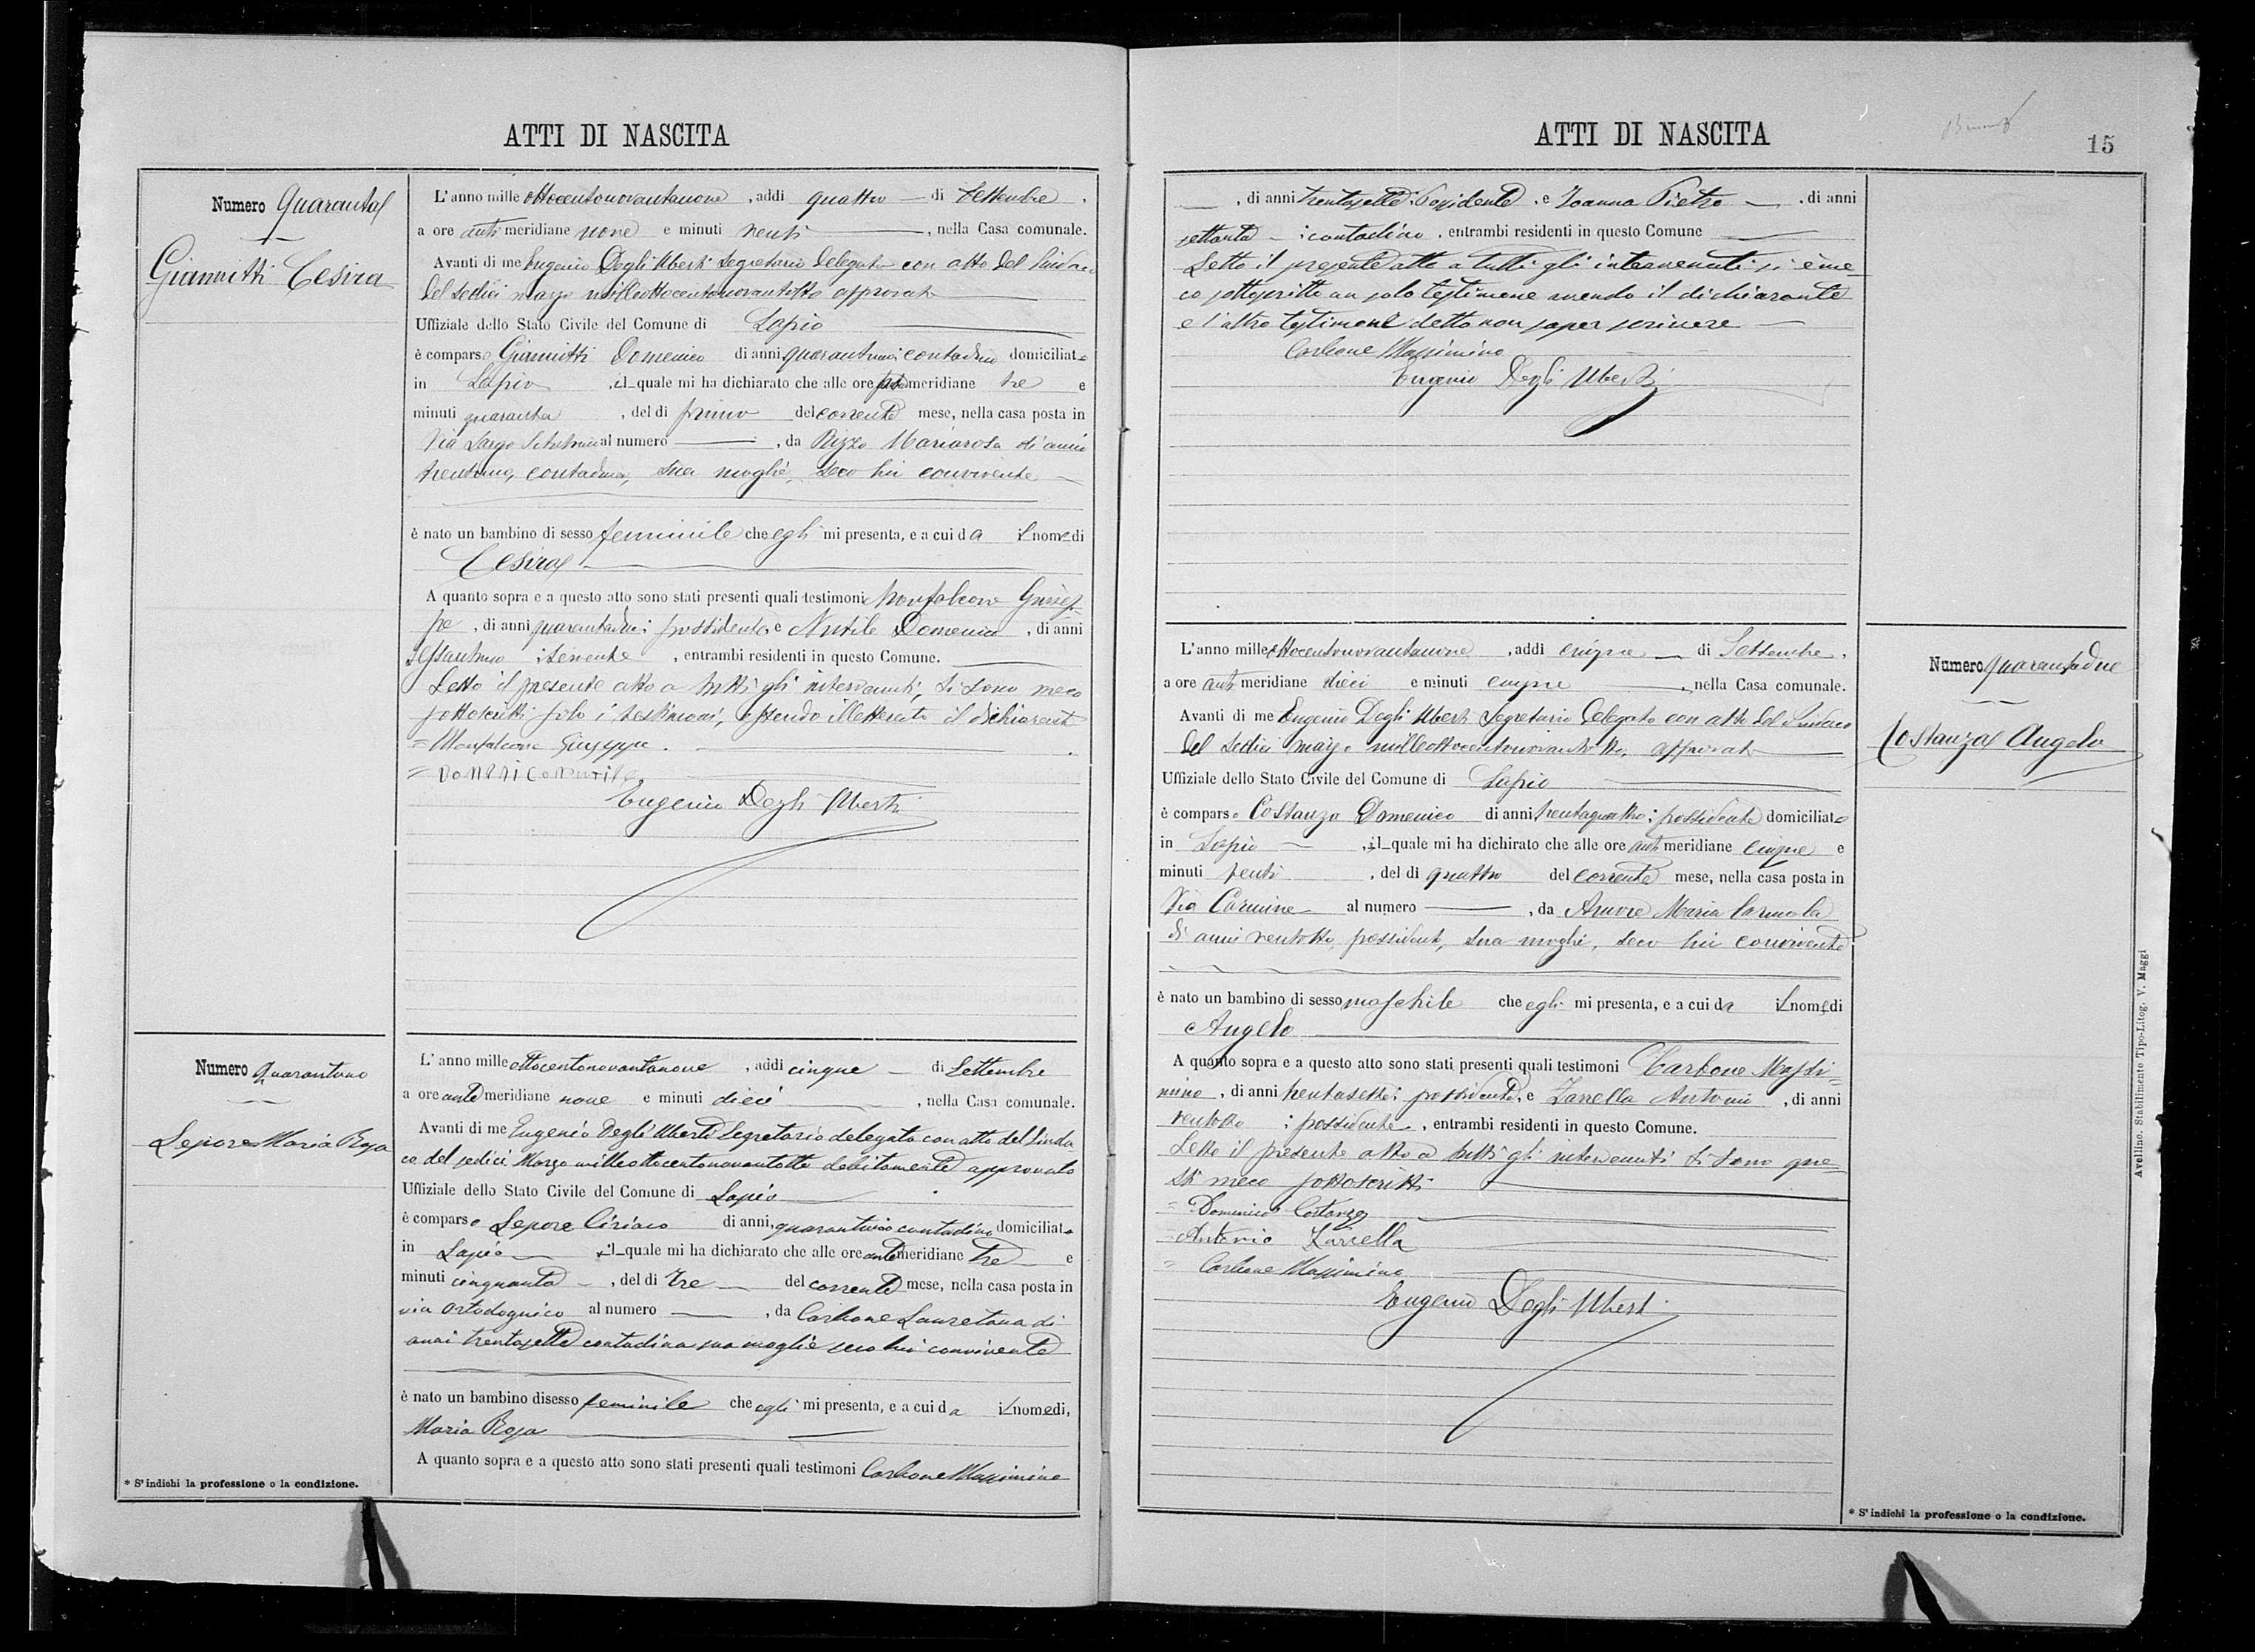 ATTI DI NASCITA
Numero Quaranta
Giannitti Cesira
L'anno mille ottocentonovantanove, addì quattro di Settembre,
a ore anti meridiane nove e minuti venti, nella Casa comunale.
Avanti di me Eugenio Degli Uberti Segretario Delegato con atto del Sindaco
del sedici marzo milleottocentonovantotto approvato
Uffiziale dello Stato Civile del Comune di Lapio
è comparso Giannitti Domenico di anni contadino domiciliato
in Lapio, il quale mi ha dichiarato che alle ore meridiane tre e
minuti quaranta, del dì primo del corrente mese, nella casa posta in
Via Largo al numero, da Rizzo Mariarosa di anni
trentuno, contadina, sua moglie, seco lui convivente
è nato un bambino di sesso femminile che egli mi presenta, e a cui dà il nome di
Cesira
A quanto sopra e a questo atto sono stati presenti quali testimoni Monfalcone Giusep-
pe, di anni possidente e Nutile Domenico, di anni
sessantuno, entrambi residenti in questo Comune.
Letto il presente atto a tutti gli intervenuti, si sono meco
sottoscritti solo i testimoni, essendo illetterato il dichiarante
= Monfalcone Giuseppe.
= Domenico Nutile
Eugenio Degli Uberti
Numero Quarantuno
Lepore Maria Rosa
L'anno mille ottocentonovantanove, addì cinque di Settembre
a ore ante meridiane nove e minuti dieci, nella Casa comunale.
Avanti di me Eugenio Degli Uberti Segretario delegato con atto del Sinda
co del sedici Marzo milleottocentonovantotto debitamente approvato
Uffiziale dello Stato Civile del Comune di Lapio
è comparso Lepore Ciriaco di anni quarantuno contadino domiciliato
in Lapio, il quale mi ha dichiarato che alle ore ante meridiane tre e
minuti cinquanta, del dì tre del corrente mese, nella casa posta in
via al numero, da Carbone Lauretana di
anni trentasette contadina sua moglie seco lui convivente
è nato un bambino di sesso feminile che egli mi presenta, e a cui dà il nome di,
Maria Rosa
A quanto sopra e a questo atto sono stati presenti quali testimoni Carbone Massimino
* S'indichi la professione o la condizione.
ATTI DI NASCITA
15
, di anni trentasette; Possidente, e Ioanna Pietro, di anni
settanta; contadino, entrambi residenti in questo Comune
Letto il presente atto a tutti gli intervenuti si è me-
co sottoscritto un solo testimone avendo il dichiarante
e l'altro testimone detto non saper scrivere
Carbone Massimino
Eugenio Degli Uberti
Numero quarantadue
Costanza Angelo
L'anno mille ottocentonovantanove, addì cinque di Settembre,
a ore anti meridiane dieci e minuti cinque, nella Casa comunale.
Avanti di me Eugenio Degli Uberti Segretario Delegato con atto del Sindaco
del sedici marzo milleottocentonovantotto, approvato
Uffiziale dello Stato Civile del Comune di Lapio
è comparso Costanzo Domenico di anni trentaquattro; possidente domiciliato
in Lapio, il quale mi ha dichirato che alle ore anti meridiane cinque e
minuti venti, del dì quattro del corrente mese, nella casa posta in
Via Carmine al numero, da Maria Carmela
di anni ventotto, possidente, sua moglie, seco lui convivente
è nato un bambino di sesso maschile che egli mi presenta, e a cui dà il nome di
Angelo
A quanto sopra e a questo atto sono stati presenti quali testimoni Carbone Massi-
mino, di anni trentasette; possidente, e Zarrella Antonio, di anni
ventotto; possidente, entrambi residenti in questo Comune.
Letto il presente atto a tutti gli intervenuti si sono que-
sti meco sottoscritti
= Domenico Costanzo
= Antonio Zarrella
= Carbone Massimino
Eugenio Degli Uberti
* S'indichi la professione o la condizione.
Avellino. Stabilimento Tipo-Litog. V. Maggi